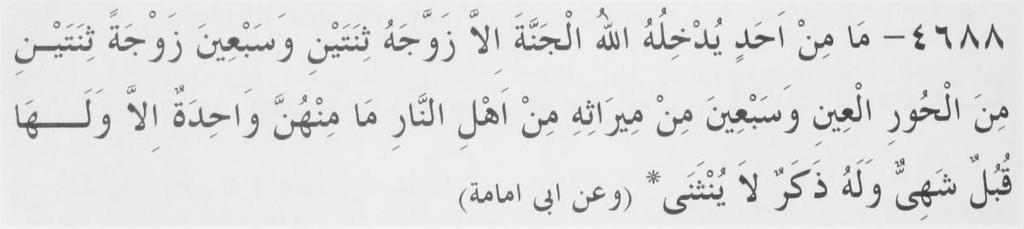 ٤٦٨٨- مَا مِنْ اَحَدٍ يُدْخِلُهُ اللهُ الْجَنَّةَ اِلاَّ زَوَّجَهُ ثِنَتَيْنِ وَسَبْعِينَ زَوْجَةً ثِنَتَيْـنِ
مِنَ الْحُورِ الْعِينِ وَسَبْعِينَ مِنْ مِيرَاثِهِ مِنْ اَهْلِ النَّارِ مَا مِنْهُنَّ وَاحِدَةٌ اِلاَّ وَلَـــهَا
قُبُلٌ شَهِىٌّ وَلَهُ ذَكَرٌ لاَ يُنْثَنَى* (وعن ابى امامة)